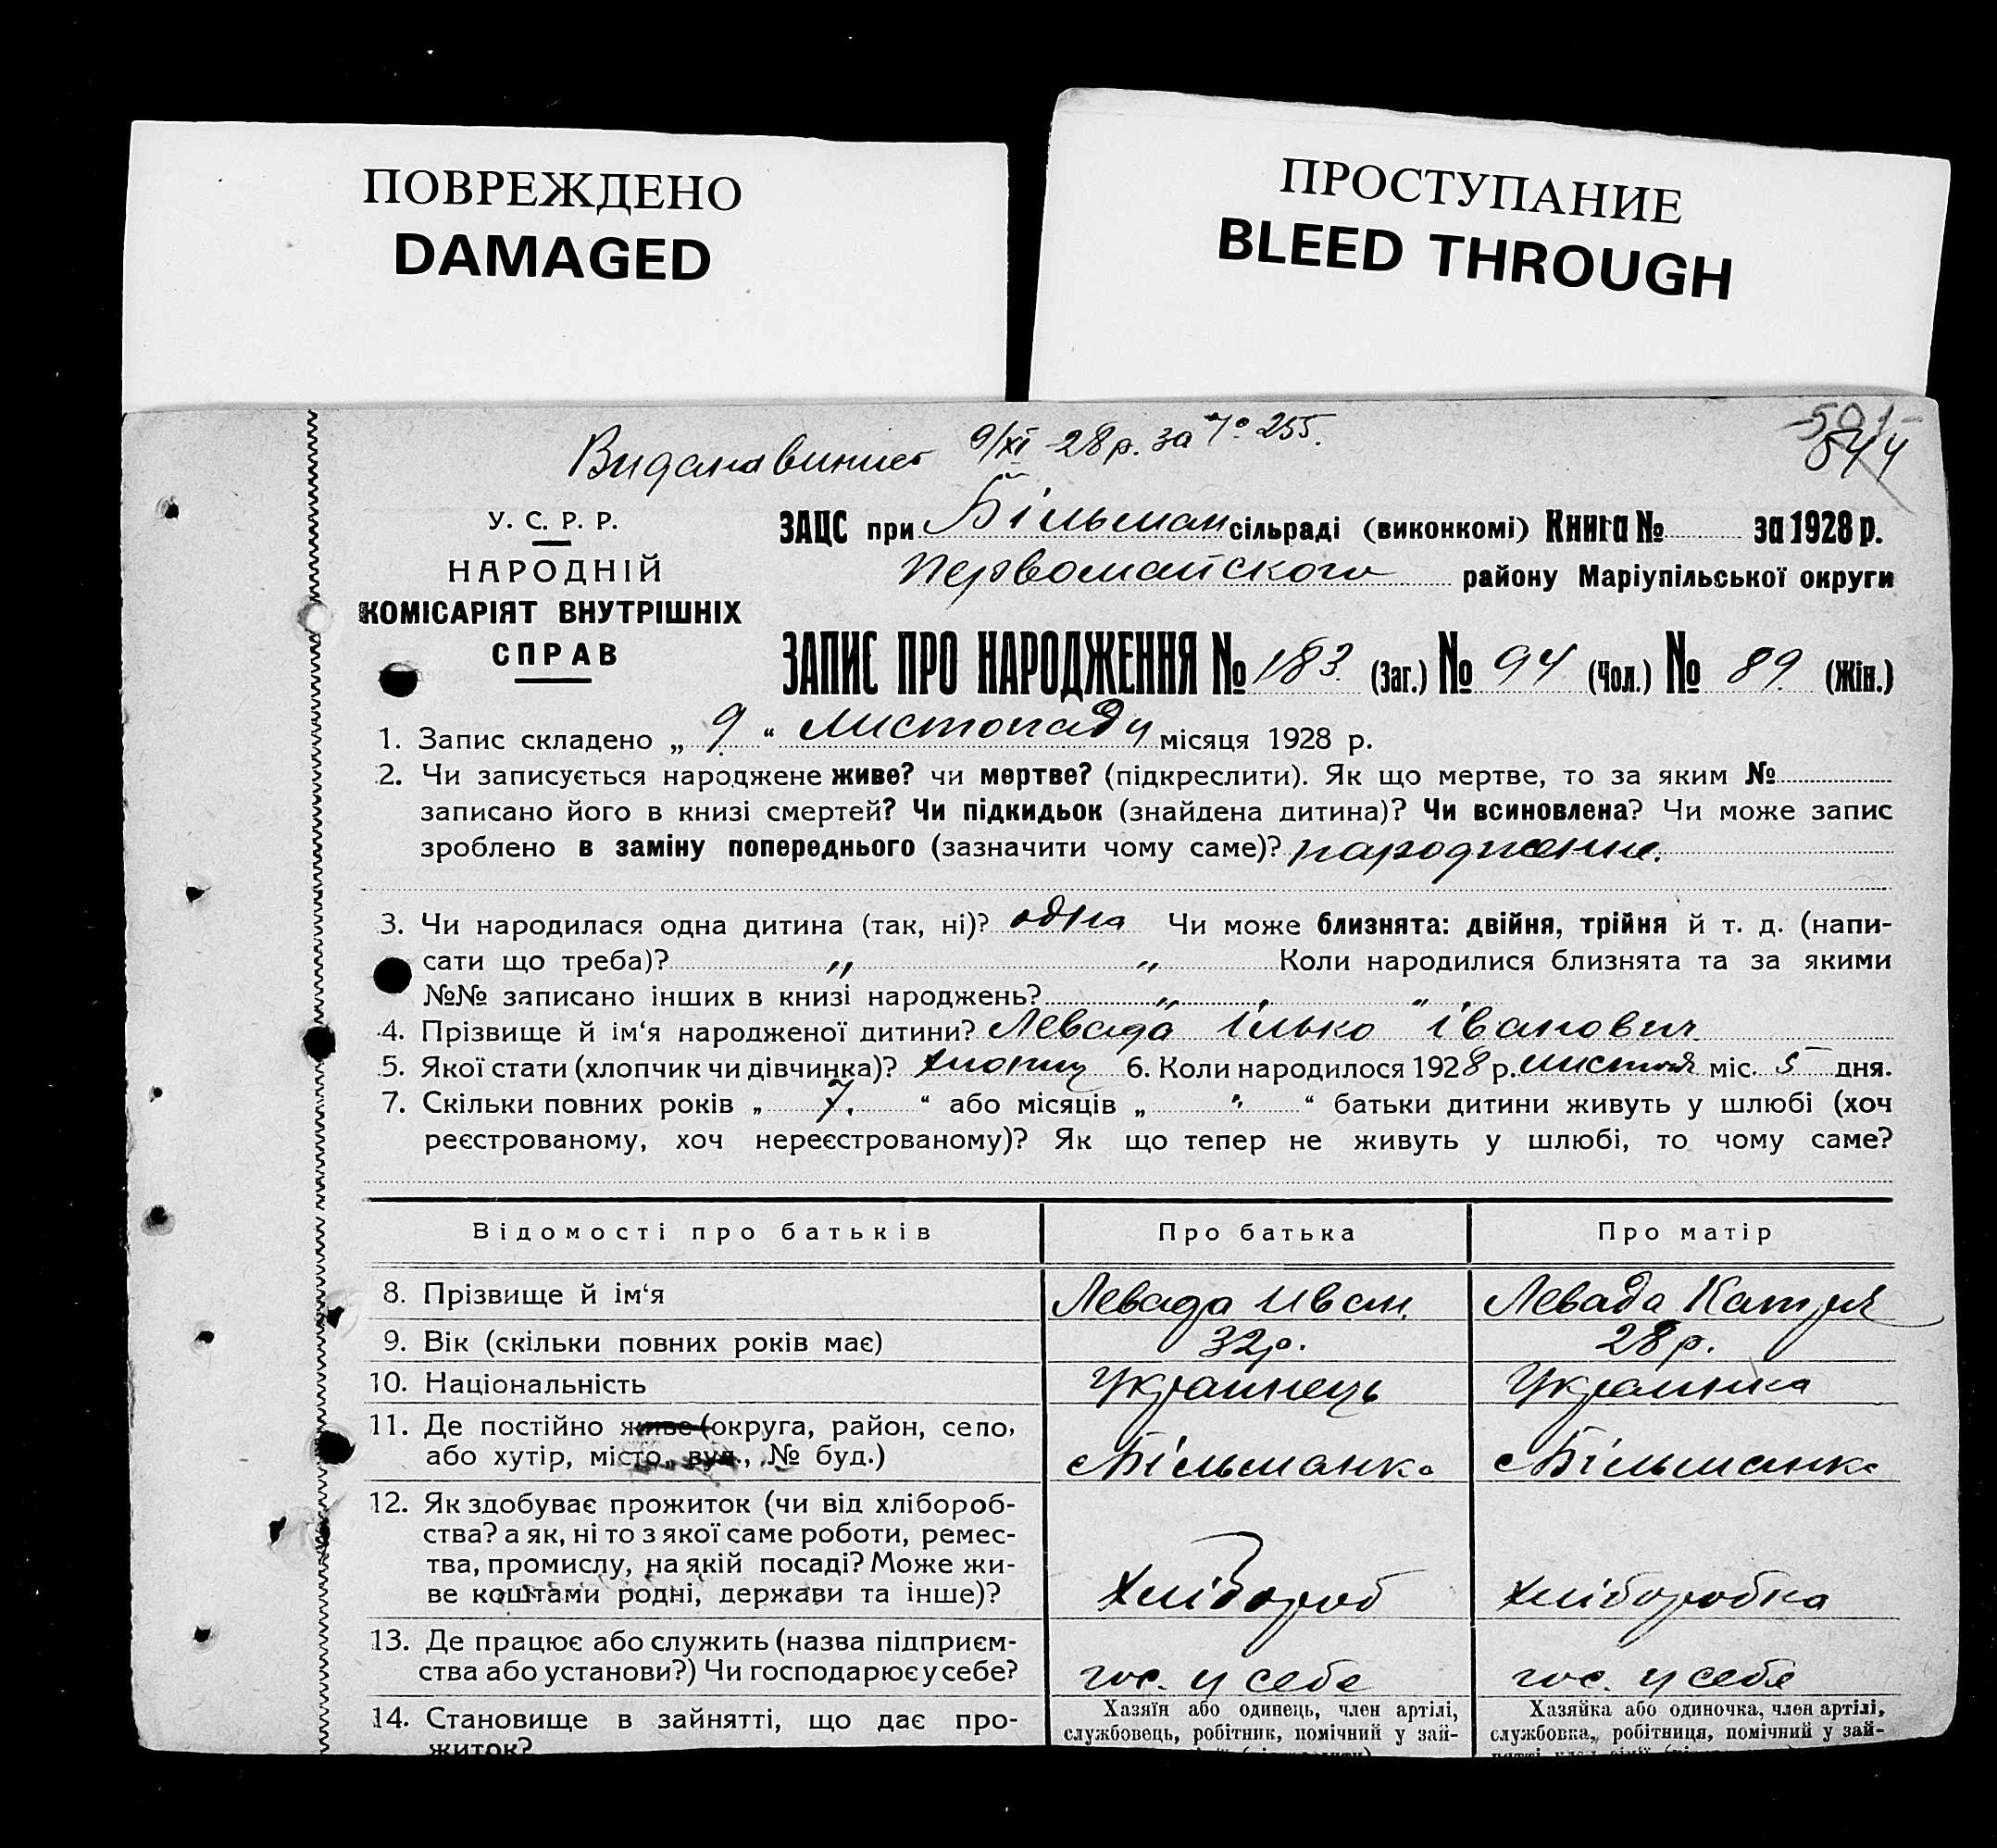 ПОВРЕЖДЕНО
DAMAGED
ПРОСТУПАНИЕ
BLEED THROUGH
9/XI 28 р. за № 255.
544
У. С. Р. Р.
НАРОДНІЙ
КОМІСАРІЯТ ВНУТРІШНІХ
СПРАВ
ЗАЦС при Більман сільраді (виконкомі) Книга № за 1928 р.
Первомайского району Маріупільської округи
ЗАПИС ПРО НАРОДЖЕННЯ № 183. (Заг.) № 94 (Чол.) № 89. (Жін.)
1. Запис складено „ 9. “ листопаду місяця 1928 р.
2. Чи записується народжене живе? чи мертве? (підкреслити). Як що мертве, то за яким №
записано його в книзі смертей? Чи підкидьок (знайдена дитина)? Чи всиновлена? Чи може запис
зроблено в заміну попереднього (зазначити чому саме)? народження.
3. Чи народилася одна дитина (так, ні)? одна Чи може близнята: двійня, трійня й т. д. (напи-
сати що треба)? „ „ Коли народилися близнята та за якими
№№ записано інших в книзі народжень? „ „
4. Прізвище й ім‘я народженої дитини? Левада Ілько Іванович
5. Якої стати (хлопчик чи дівчинка)? хлопчик 6. Коли народилося 1928 р. листопа міс. 5 дня.
7. Скільки повних років „ 7. “ або місяців „ " “ батьки дитини живуть у шлюбі (хоч
реєстрованому, хоч нереєстрованому)? Як що тепер не живуть у шлюбі, то чому саме?
Відомості про батьків Про батька Про матір
8. Прізвище й ім‘я Левада Иван. Левада Катря
9. Вік (скільки повних років має) 32 р. 28 р.
10. Національність Українець Українка
11. Де постійно живе (округа, район, село,
або хутір, місто, вул., № буд.) с Більманка с Більманка
12. Як здобуває прожиток (чи від хлібороб-
ства? а як, ні то з якої саме роботи, ремес-
тва, промислу, на якій посаді? Може жи-
ве коштами родні, держави та інше)? Хлібороб Хліборобка
13. Де працює або служить (назва підприєм-
ства або установи?) Чи господарює у себе? гос. у себе гос. у себе
14. Становище в зайнятті, що дає про-
житок?
Хазяїн або одинець, член артілі,
службовець, робітник, помічний у зай-
Хазяйка або одиночка, член артілі,
службовка, робітниця, помічний у зай-